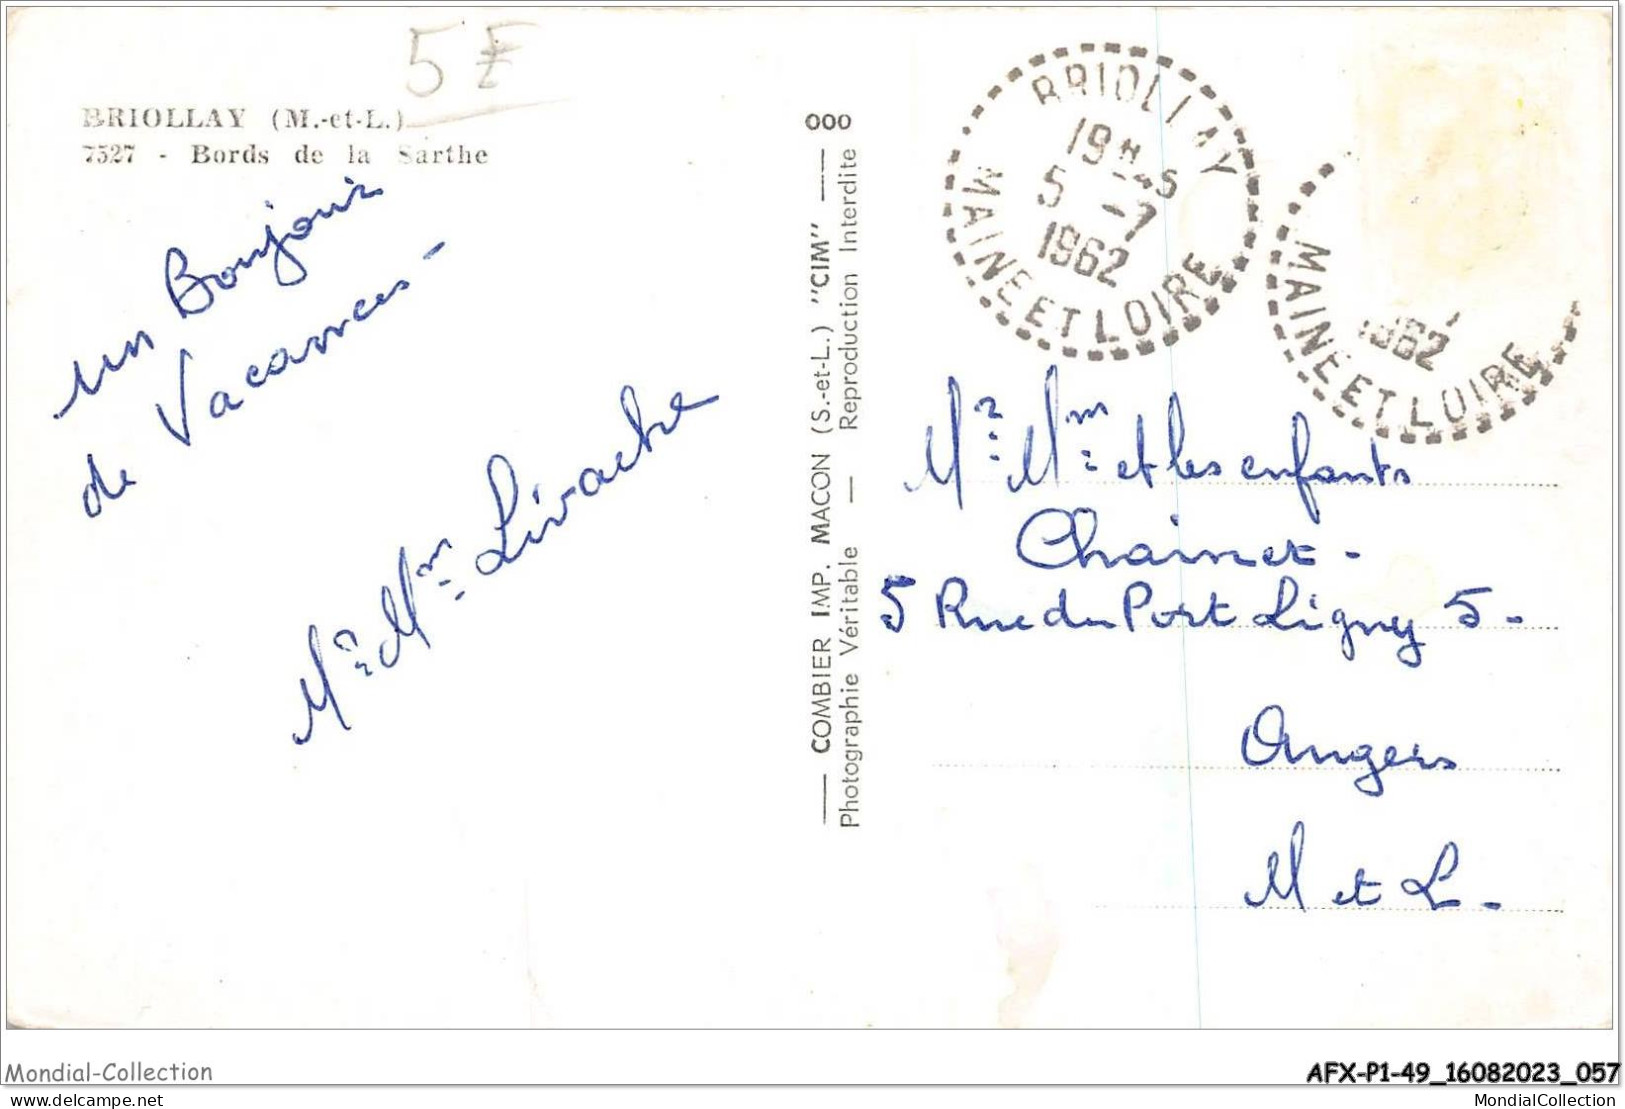 5 F
BRIOLLAY (M.-et-L.)
7527 - Bords de la Sarthe
un Bonjour
de Vacances -
Mr Mm Livache
000
COMBIER IMP. MACON (S.-et-L.) "CIM"
Photographie Véritable — Reproduction Interdite
BRIOLLAY
5 -7
1962
MAINE ET LOIRE
1962
MAINE ET LOIRE
Mr Mm et les enfants
Chainet -
5 Rue du Port Ligny 5 -
Angers
M et L -
Mondial-Collection
AFX-P1-49_16082023_057
delcampe.net
MondialCollection